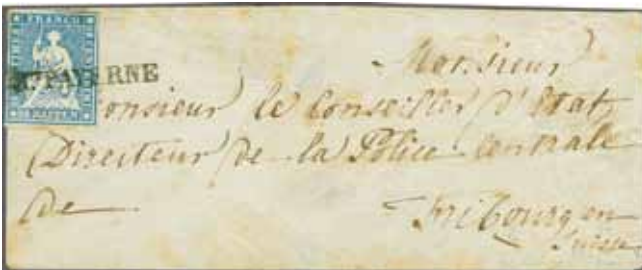 FRANCO
PAYERNE
Monsieur
Monsieur le Conseiller d'Etat
Directeur de la Police Centrale
de
Fribourg en
Suisse